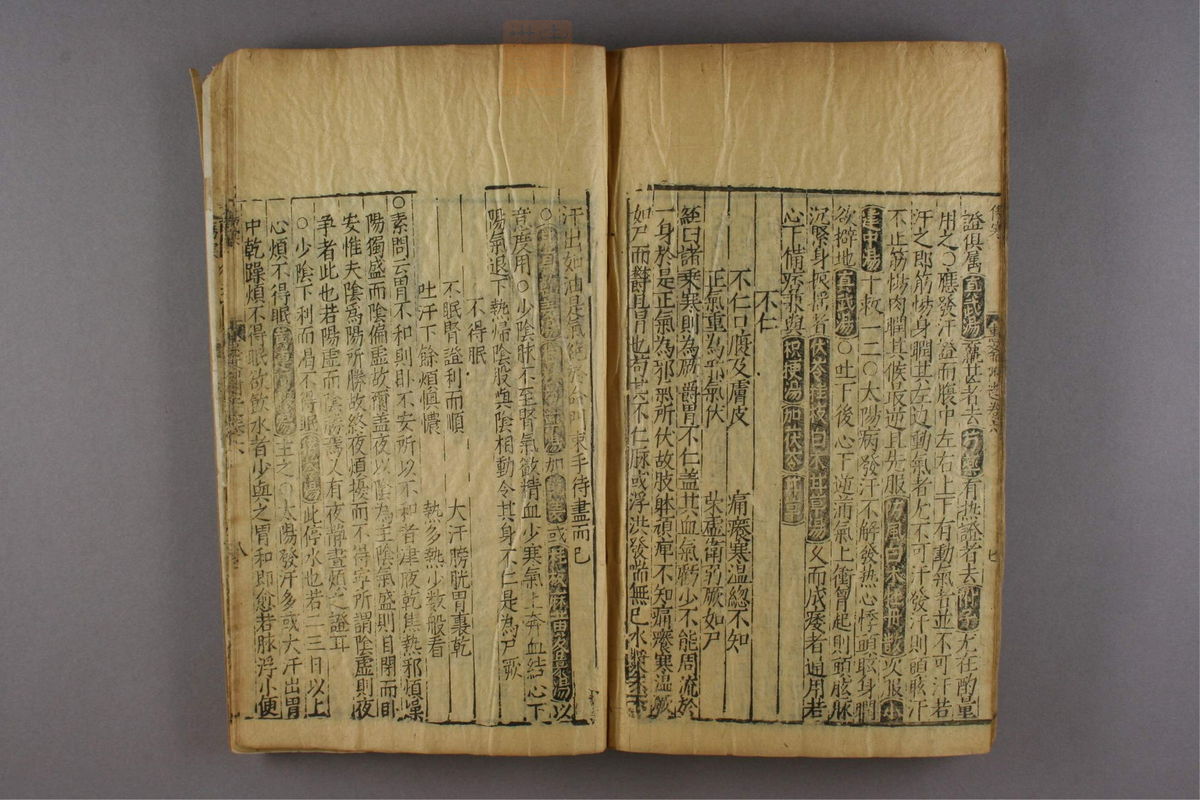 證俱屬真武湯羸甚者去芍藥有熱證者去附子尤在酌量
用之〇應發汗溢而腹中左右上下有動氣者並不可汗若
汗之即筋惕身瞤其左边動氣者尤不可汗發汗則頭眩汗
不止筋惕肉瞤其候最逆且先服防風白朮牡蠣散次服小
建中湯十救一二〇太陽病發汗不解發热心悸頭眩身瞤
欲擗地真武湯〇吐下後心下逆滿氣上衝胷起則頭眩脉
沉緊身振搖者茯苓桂枝白朮甘草湯久而成痿者通用若
心下備痞兼與枳梗湯加茯苓
不仁
不仁口瘡及膚皮 痛癢寒温緫不知
正氣重為邪氣伏 荣虛衛弱厥如尸
經曰諸乘寒則為厥爵冒不仁盖其血氣虧少不能周流於
一身於是正氣為邪氣所伏故肢躰頑痺不知痛癢寒温
如尸而欝且冒也苟其不仁脉或浮洪發喘無已水漿不下
汗出如油是氣絕於命門束手待盡而已
〇湯加或桂枝麻黃各半湯以
意度用〇少陰脉不至腎氣微精血少寒氣上奔血結心下
陽氣退下熱歸陰股與陰相動令其身不仁是為尸厥
不得眠
不眠胷證利而順 大汗膀胱胃裏乾
吐汗下餘煩慎懷 熱多熱少数般看
〇素問云胃不和則卧不安所以不和者津液乾焦熱邪煩燥
陽獨盛而陰偏虛故爾盖夜以陰為主陰氣盛則目閉而卧
安惟夫陰為陽所勝故終夜煩擾而不得寧所謂陰虛則夜
争者此也若陽虛而陰勝焉又有夜靜晝煩之證耳
〇少陰下利而渴不得眠湯此停水也若二三日以上
心煩不得眠湯主之〇太陽發汗多或大汗出胃
中乾躁煩不得眠欲飲水者少與之胃和即愈若脉浮小便